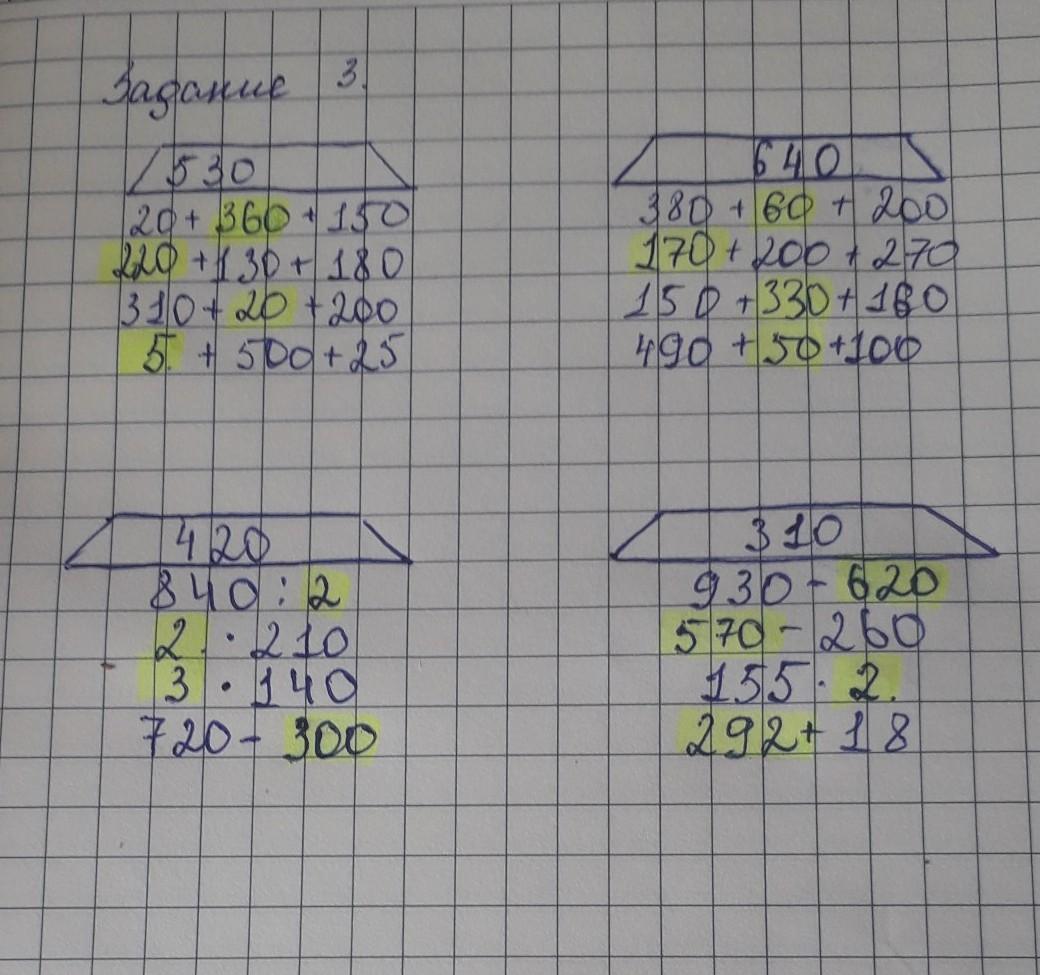 Задание 3.
530
20 + 360 + 150
220 + 130 + 180
310 + 20 + 200
5. + 500 + 25
640
380 + 60 + 200
170 + 200 + 270
150 + 330 + 160
490 + 50 + 100
420
840 : 2
2. · 210
3 · 140
720 - 300
310
930 - 620
570 - 260
155 · 2.
292 + 18